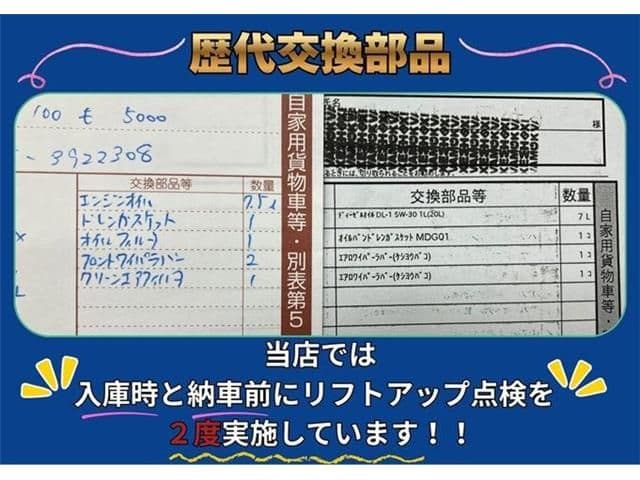 歴代交換部品
100 も 5000
- 3922308
交換部品等 数量
エンジンオイル 7.5ℓ
ドレンガスケット 1
オイルフィルター 1
フロントワイパーラバー 2
クリーンエアフィルタ 1
自家用貨物車等・別表第5
氏名
様
交換部品等 数量
ディーゼルオイル DL-1 5W-30 1L(20L) 7 L
オイルパンドレンガスケット MDG01 1コ
エアロワイパーラバー(ケショウバコ) 1コ
エアロワイパーラバー(ケショウバコ) 1コ
自家用貨物車等・
当店では
入庫時と納車前にリフトアップ点検を
2度実施しています！！